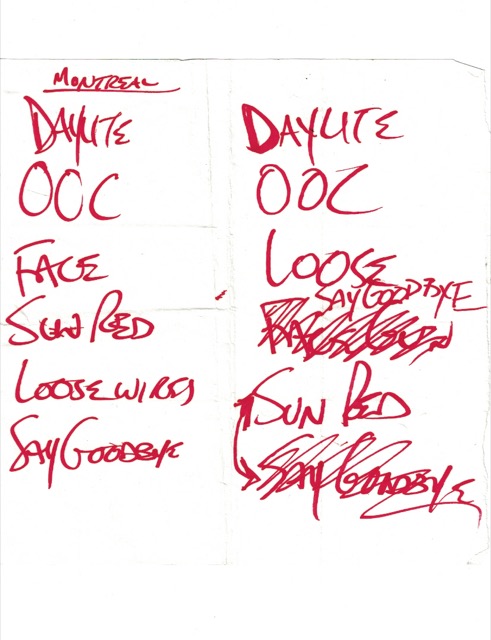 MONTREAL
DAYLITE
OOC
FACE
SUN RED
LOOSE WIRES
SAY GOODBYE
DAYLITE
OOC
LOOSE
SAY GOODBYE
SUN RED
SAY GOODBYE